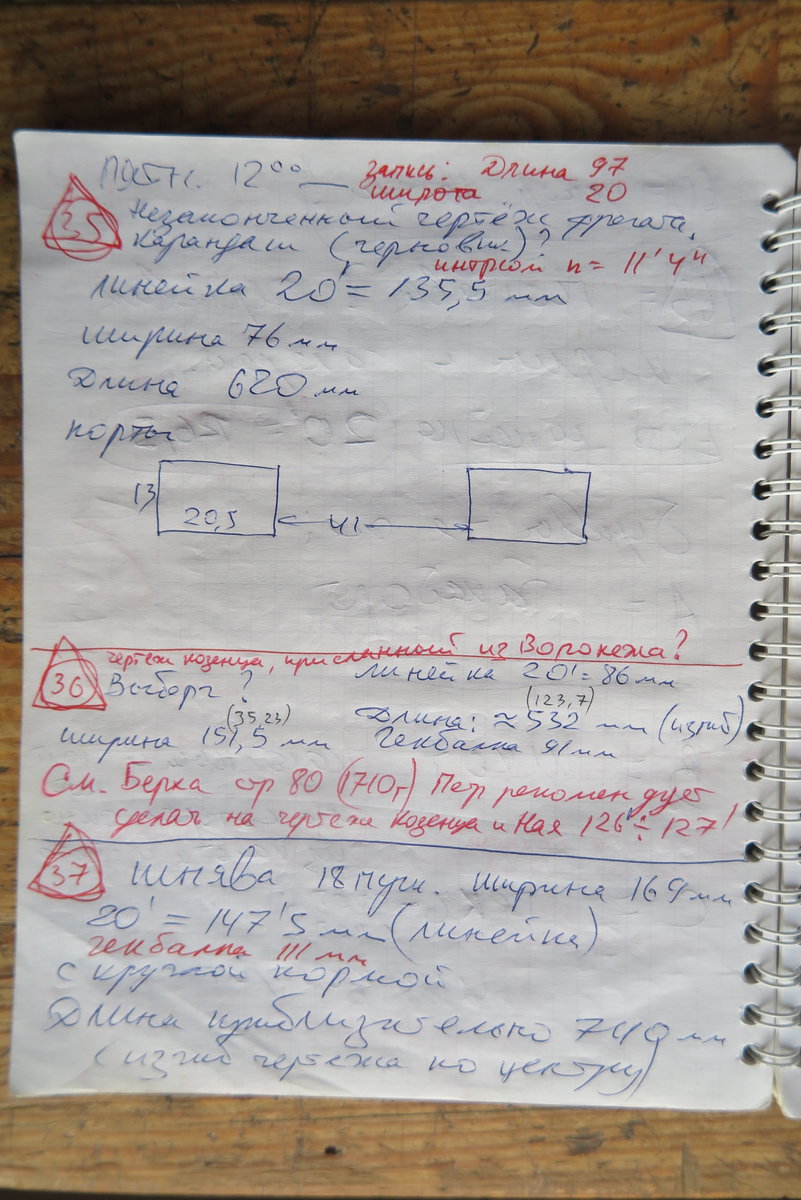 Пятн. 12⁰⁰ — запись: Длина 97
широта 20
35 Незаконченный чертёж фрегата.
Карандаш (черновик)?
интрюм n = 11' 4"
линейка 20' = 135,5 мм
ширина 76 мм
Длина 620 мм
порты
13 20,5 41
чертёж Козенца, присланный из Воронежа?
36 Выборг? линейка 20' = 86 мм
(35,23) (123,7)
ширина 151,5 мм Длина: ≈ 532 мм (изгиб)
Гекбалка 91 мм
См. Берха стр 80 (1710 г) Петр рекомендует
сделать на чертеже Козенца и Ная 126' ÷ 127'
37 Шнява 18 пуш. ширина 169 мм
20' = 147'5 мм (линейка)
гекбалка 111 мм
с круглой кормой
Длина приблизительно 740 мм
(изгиб чертежа по центру)